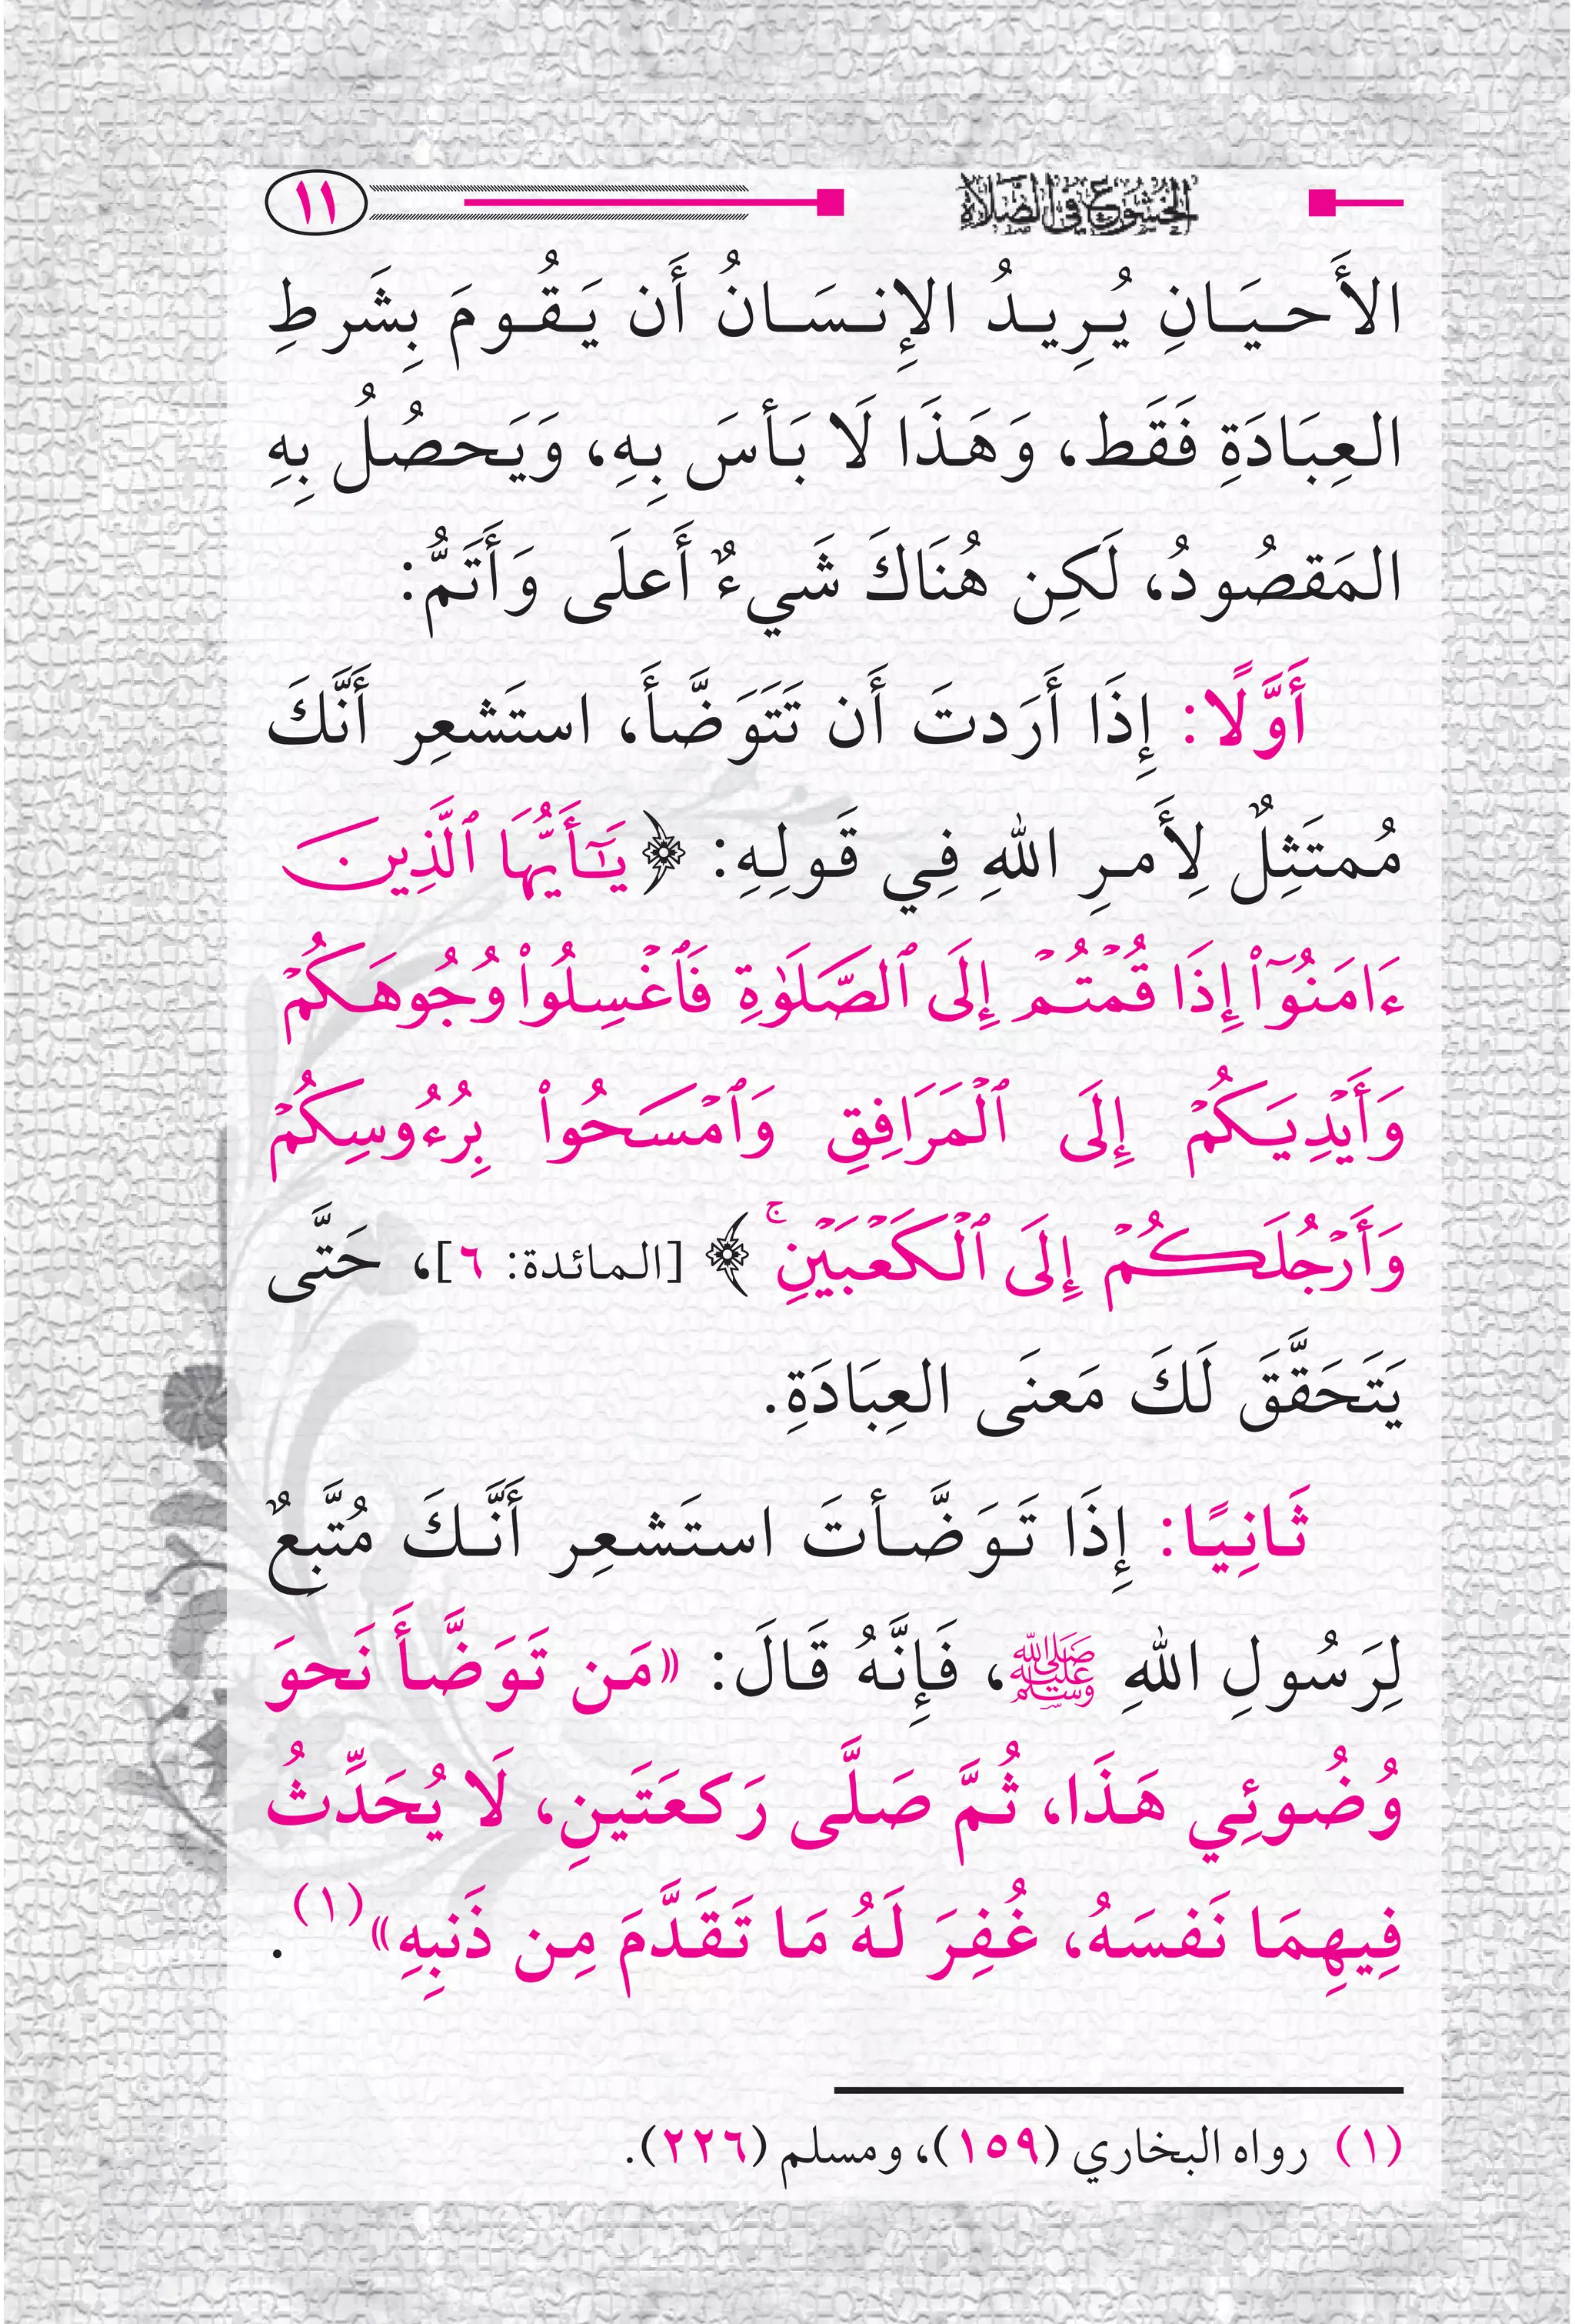 الخشوع في الصلاة
١١
الأَحيَانِ يُرِيدُ الإِنسَانُ أَن يَقُومَ بِشَرطِ
العِبَادَةِ فَقَط، وَهَذَا لَا بَأسَ بِهِ، وَيَحصُلُ بِهِ
المَقصُودُ، لَكِن هُنَاكَ شَيءٌ أَعلَى وَأَتَمُّ:
أَوَّلًا: إِذَا أَرَدتَ أَن تَتَوَضَّأَ، استَشعِر أَنَّكَ
مُمتَثِلٌ لِأَمرِ اللهِ فِي قَولِهِ: ﴿يَـٰٓأَيُّهَا ٱلَّذِينَ
ءَامَنُوٓاْ إِذَا قُمۡتُمۡ إِلَى ٱلصَّلَوٰةِ فَٱغۡسِلُواْ وُجُوهَكُمۡ
وَأَيۡدِيَكُمۡ إِلَى ٱلۡمَرَافِقِ وَٱمۡسَحُواْ بِرُءُوسِكُمۡ
وَأَرۡجُلَكُمۡ إِلَى ٱلۡكَعۡبَيۡنِۚ﴾ [المائدة: ٦]، حَتَّى
يَتَحَقَّقَ لَكَ مَعنَى العِبَادَةِ.
ثَانِيًا: إِذَا تَوَضَّأتَ استَشعِر أَنَّكَ مُتَّبِعٌ
لِرَسُولِ اللهِ ﷺ، فَإِنَّهُ قَالَ: «مَن تَوَضَّأَ نَحوَ
وُضُوئِي هَذَا، ثُمَّ صَلَّى رَكعَتَينِ، لَا يُحَدِّثُ
فِيهِمَا نَفسَهُ، غُفِرَ لَهُ مَا تَقَدَّمَ مِن ذَنبِهِ»(١).
(١) رواه البخاري (١٥٩)، ومسلم (٢٢٦).